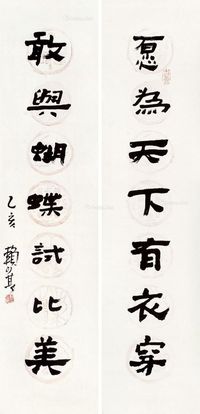 愿為天下有衣穿
敢與蝴蝶試比美
乙亥
賴少其